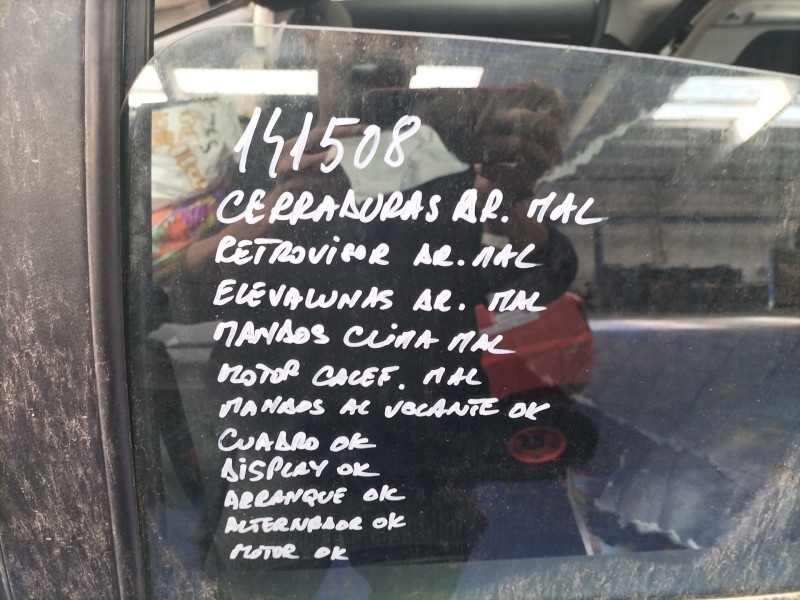 141508
CERRADURAS AR. MAL
RETROVISOR AR. MAL
ELEVALUNAS AR. MAL
MANDOS CLIMA MAL
MOTOR CALEF. MAL
MANDOS AL VOLANTE OK
CUADRO OK
DISPLAY OK
ARRANQUE OK
ALTERNADOR OK
MOTOR OK